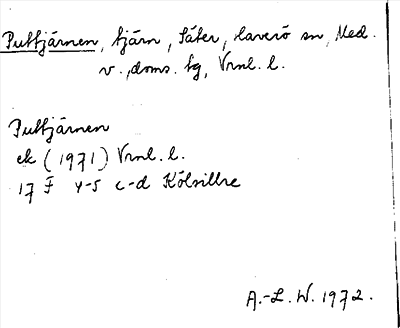 Puttjärnen, tjärn, Säter, Haverö sn, Med.
v., doms. tg, Vrnl. l.
Puttjärnen
ek (1971) Vrnl. l.
17 F 4-5 c-d Kölsillre
A.-L. W. 1972.